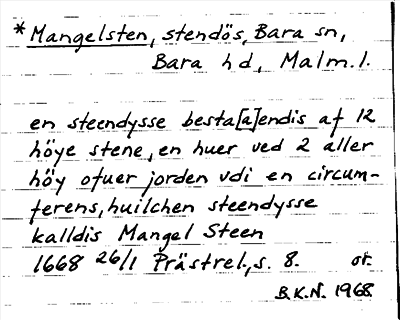 * Mangelsten, stendös, Bara sn,
Bara hd, Malm.l.
en steendysse besta[a]endis af 12
höye stene, en huer ved 2 aller
höy ofuer jorden vdi en circum-
ferens, huilchen steendysse
kalldis Mangel Steen
1668 26/1 Prästrel., s. 8. or.
B.K.N. 1968.